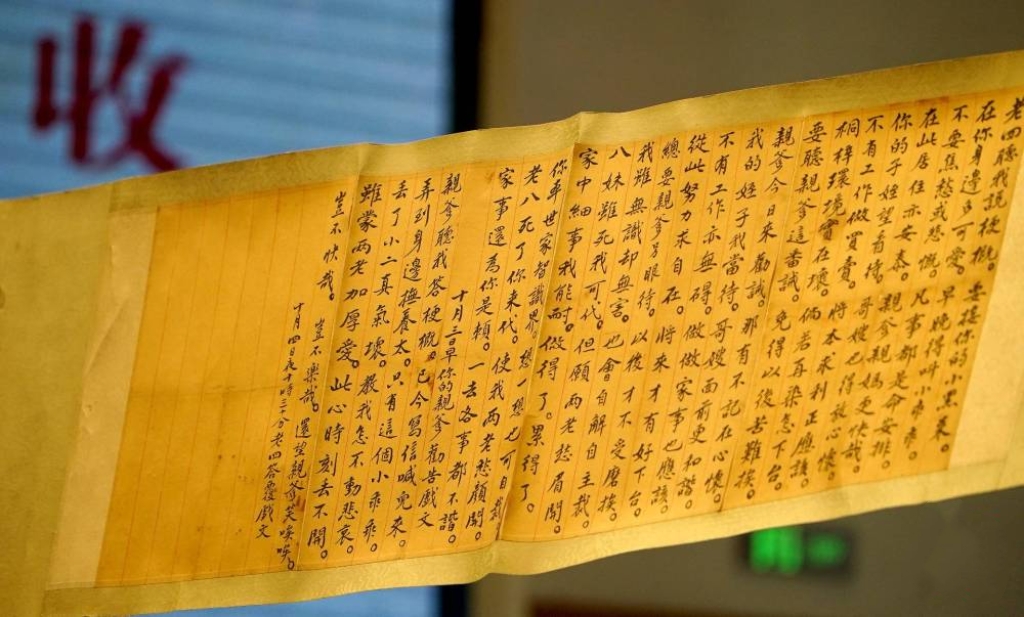 收
老四聽我說梗概。要提你的小黑來。
在你身邊多可愛。早晚得叫小乖乖。
不要焦愁或悲慨。凡事都是命安排。
在此居住亦安泰。親爹親媽更快哉。
你的子姪望看待。哥嫂也得放心懷。
不有工作做買賣。將本求利正應該。
桐梓環境實在壞。倘若再染怎下台。
要聽親爹這番誡。免得以後苦難挨。
親爹今日來勸誡。那有不記在心懷。
我的姪子我當待。哥嫂面前更和諧。
不有工作亦無碍。做做家事也應該。
從此努力求自在。將來才有好下台。
總要親爹另眼待。以後才不受磨挨。
我雖無識却無害。也會自解自主哉。
八妹雖死我可代。但願兩老愁眉開。
家中細事我能耐。做得了。累得了。
你年世家智識界。想一想也可自裁。
老八死了你來代。使我兩老愁顏開。
家事還為你是賴。一去各事都不諧。
十月三日早你的親爹勸告戲文
親爹聽我答梗概。已今寫信喊兔來。
弄到身邊撫養太。只有這個小乖乖。
丟了小二真氣壞。教我怎不動悲哀。
雖蒙兩老加厚愛。此心時刻丟不開。
豈不快哉。豈不樂哉。還望親爹笑咳咳。
十月四日夜十時三十分老四答覆戲文